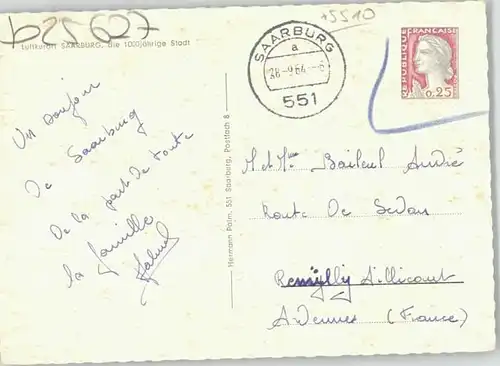 b25627
15510
Luftkurort SAARBURG, die 1000jährige Stadt
SAARBURG
a
28-9.64-8
551
REPUBLIQUE FRANÇAISE
0,25
Un Bonjour
De Saarburg
De la part De toute
la famille
Hermann Palm, 551 Saarburg, Postfach 8
M et Mme Baileul André
Route De Sedan
Remilly Aillicourt
Ardennes (France)